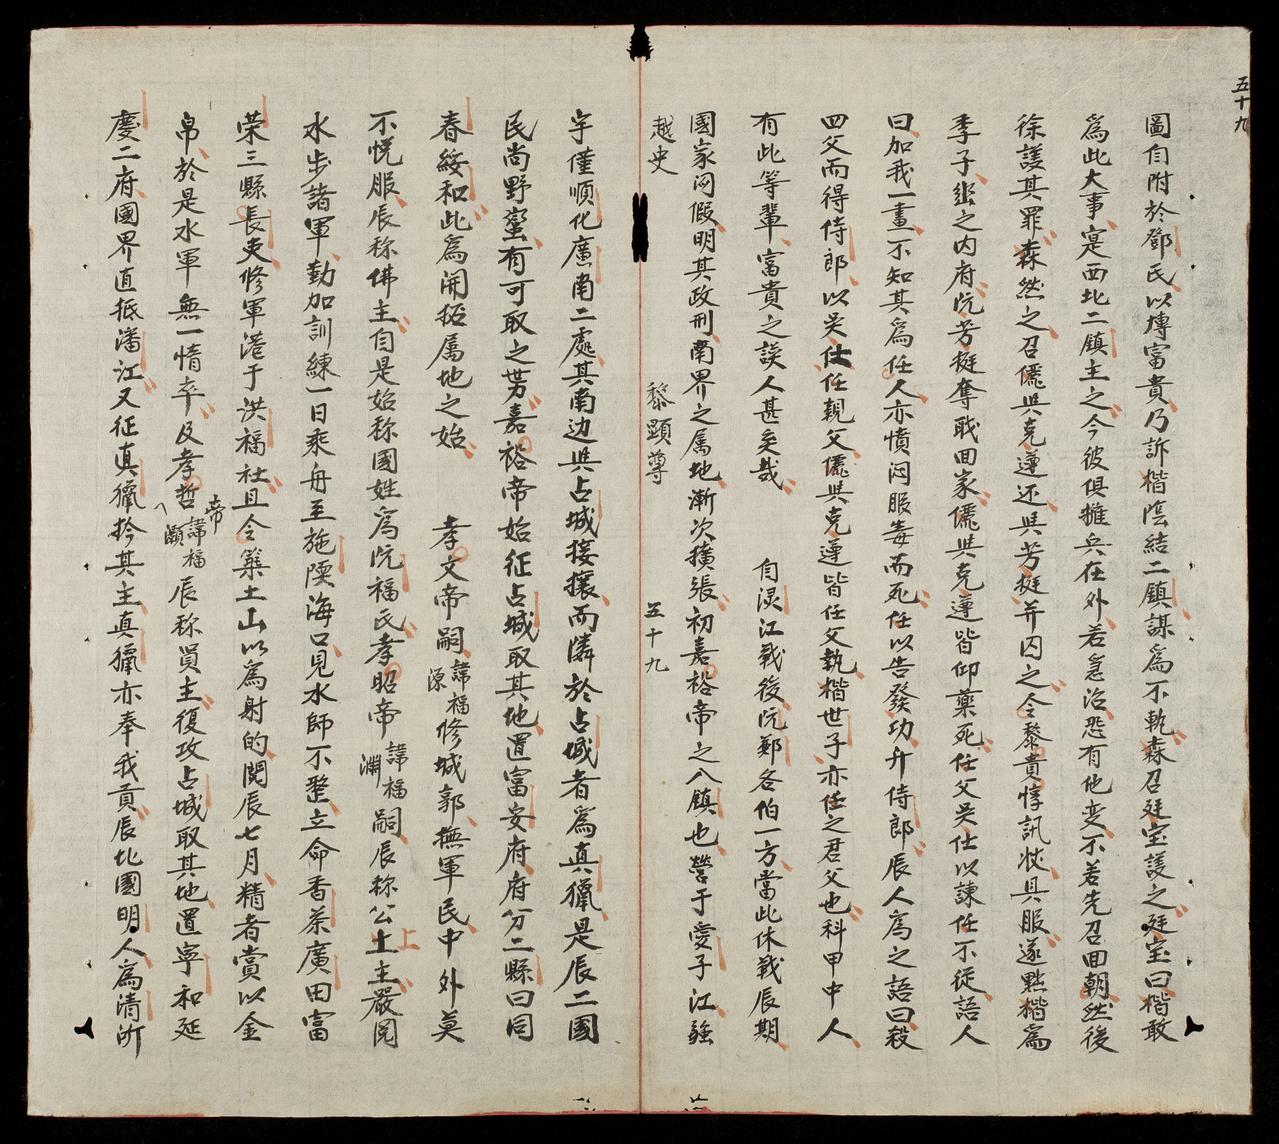 五十九
圖自附於鄧氏以塼富貴乃訴楷陰結二鎮謀為不軌森召廷宝議之廷宝曰楷敢
為此大事寔西北二鎮主之今彼俱擁兵在外若急治恐有他变不若先召囬朝然後
徐議其罪森然之召儷與克遵还與芳挺并囚之令黎貴惇訊狀具服遂黜楷為
季子幽之内府阮芳挺奪戢囬家儷與克遵皆仰藥死任父吴仕以諫任不從語人
曰加我一畫不知其為任人亦憤闷服毒而死任以告發功升侍郎辰人為之語曰殺
四父而得侍郎以吴仕任親父儷與克遵皆任父執楷世子亦任之君父也科甲中人
有此等輩富貴之誤人甚矣哉 自淚江戰後阮鄭各伯一方當此休戰辰期
國家闷假明其政刑南界之属地漸次擴張初嘉裕帝之入鎮也營于愛子江疆
越史 黎顕尊 五十九
宇僅順化廣南二處其南边與占城接攘而隣於占城者為真臘是辰二國
民尚野蛮有可取之势嘉裕帝始征占城取其地置富安府府分二縣曰同
春綏和此為開拓属地之始 孝文帝嗣諱福源修城郭撫軍民中外莫
不悦服辰称佛主自是始称國姓為阮福氏孝昭帝諱福瀾嗣辰称公上主嚴閱
水步諸軍勤加訓練一日乘舟至施陾海口見水師不整立命香茶廣田富
荣三縣長吏修軍港于洪福社且令築土山以為射的閱辰七月精者賞以金
帛於是水軍無一惰卒及孝哲帝諱福瀕辰称賢主復攻占城取其地置寧和延
慶二府國界直抵潘江又征真臘拎其主真臘亦奉我貢辰北國明人為清所